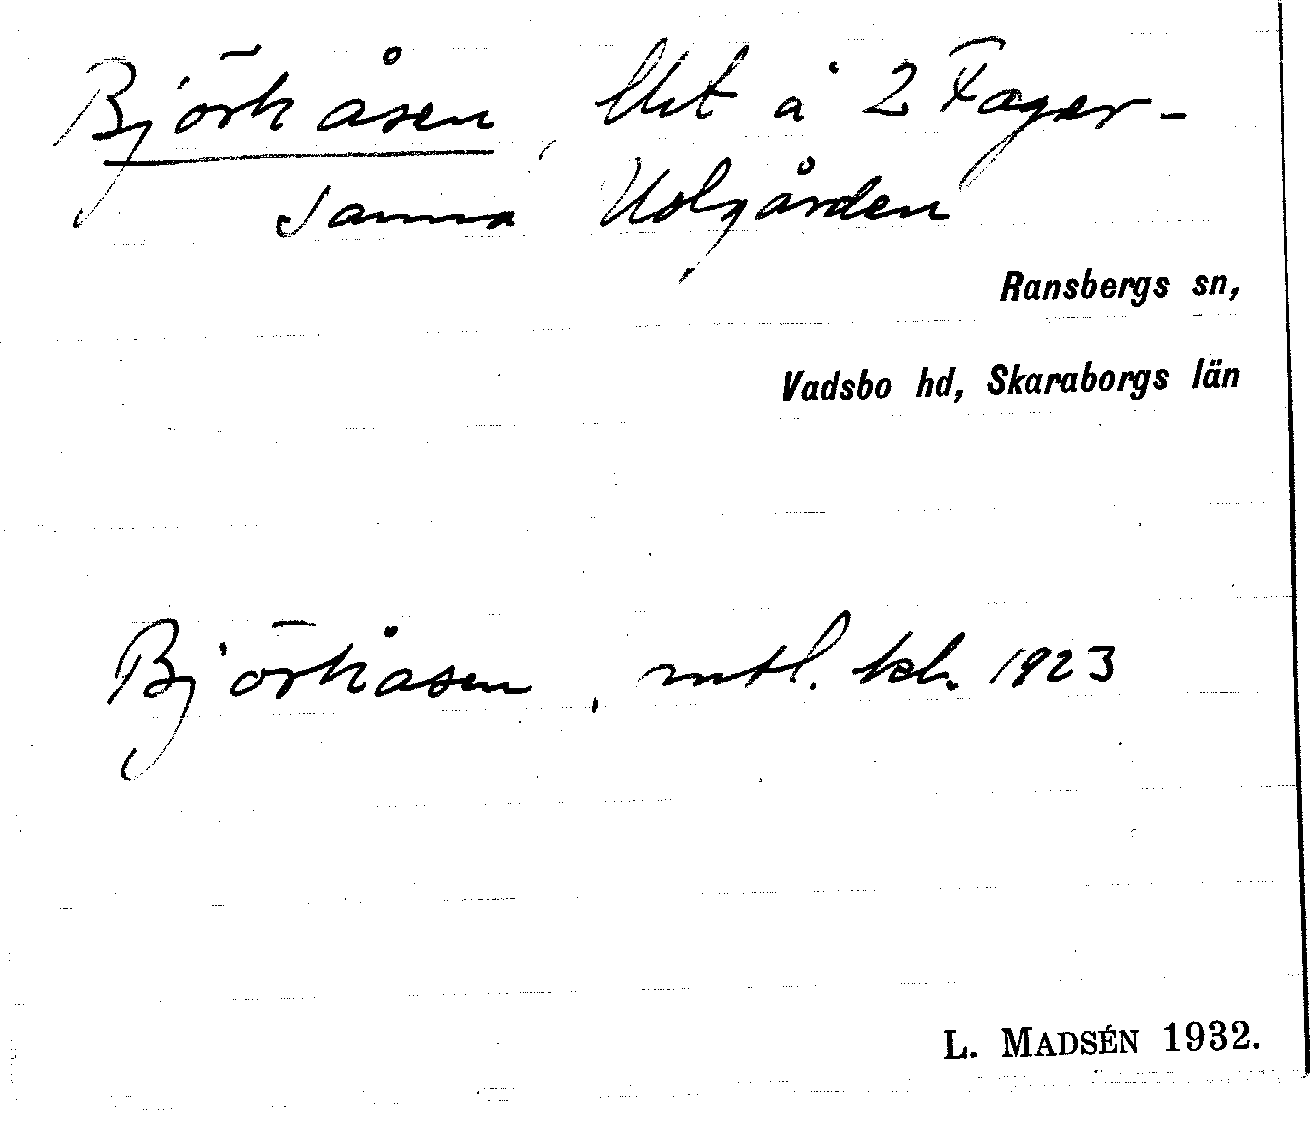 Björkåsen, lht å 2 Fager-
sanna Holgården
Ransbergs sn,
Vadsbo hd, Skaraborgs län
Björkåsen, mtl. kl. 1923
L. MADSÉN 1932.